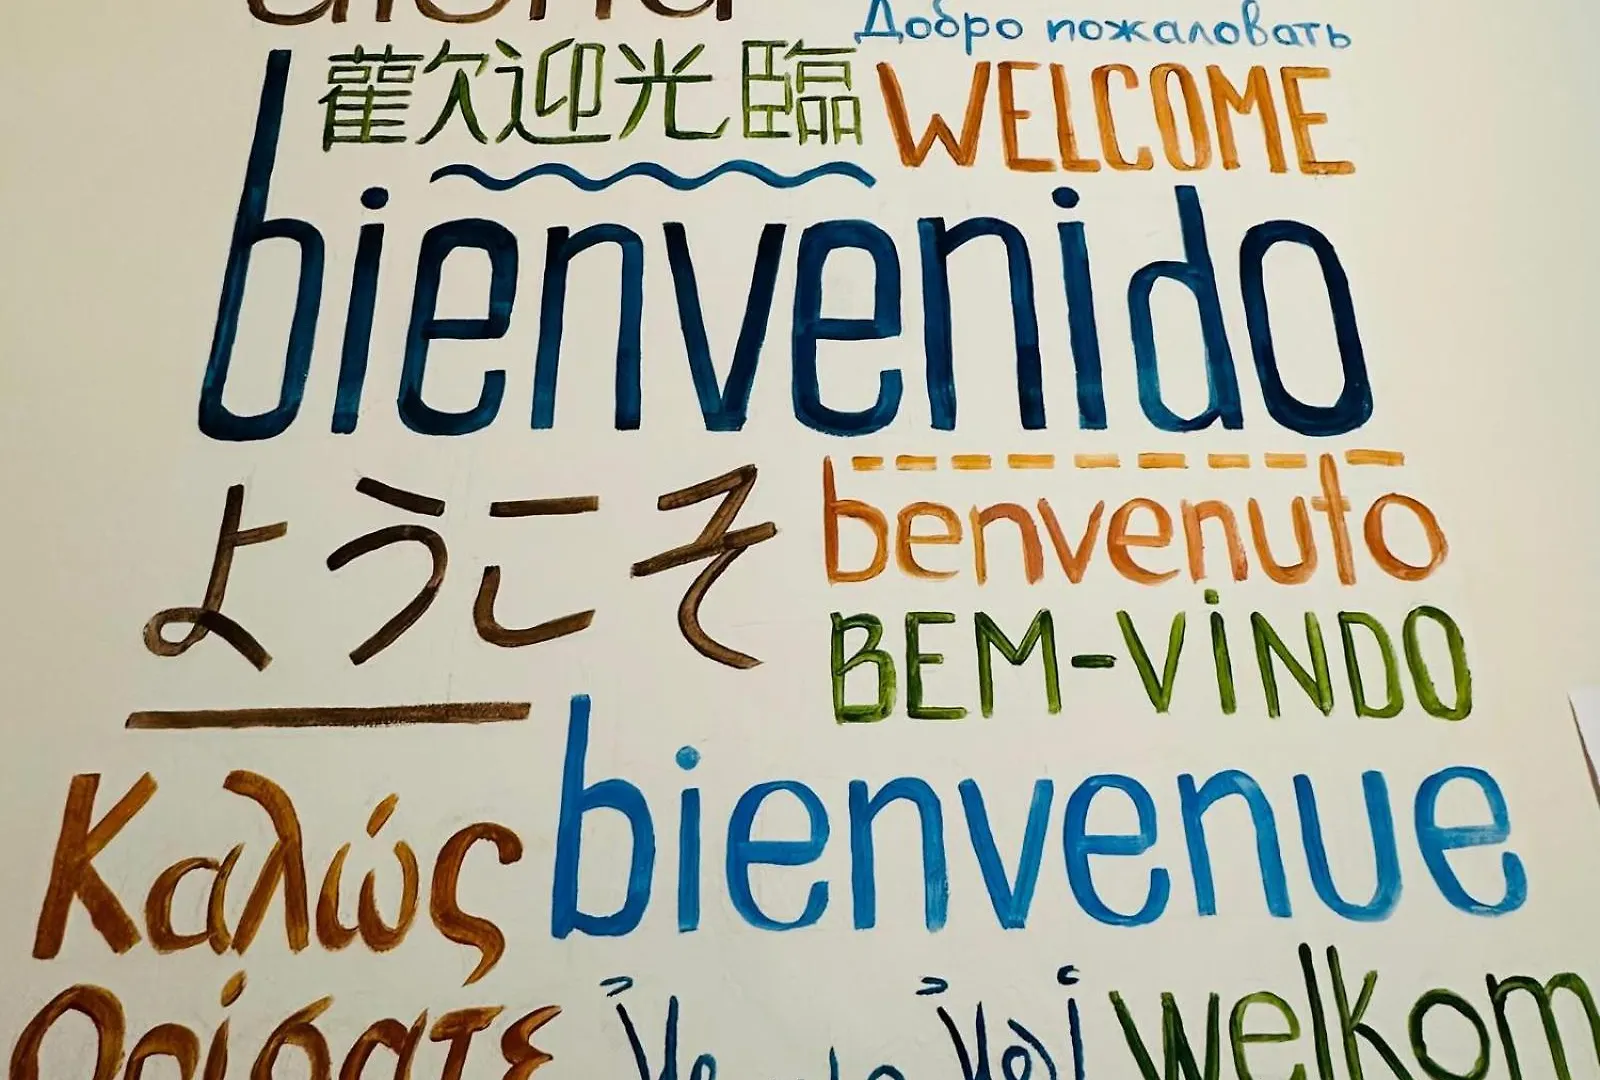 aloha
Добро пожаловать
歡迎光臨
WELCOME
bienvenido
ようこそ
benvenuto
BEM-VINDO
Καλώς
bienvenue
Ορίσατε
welkom